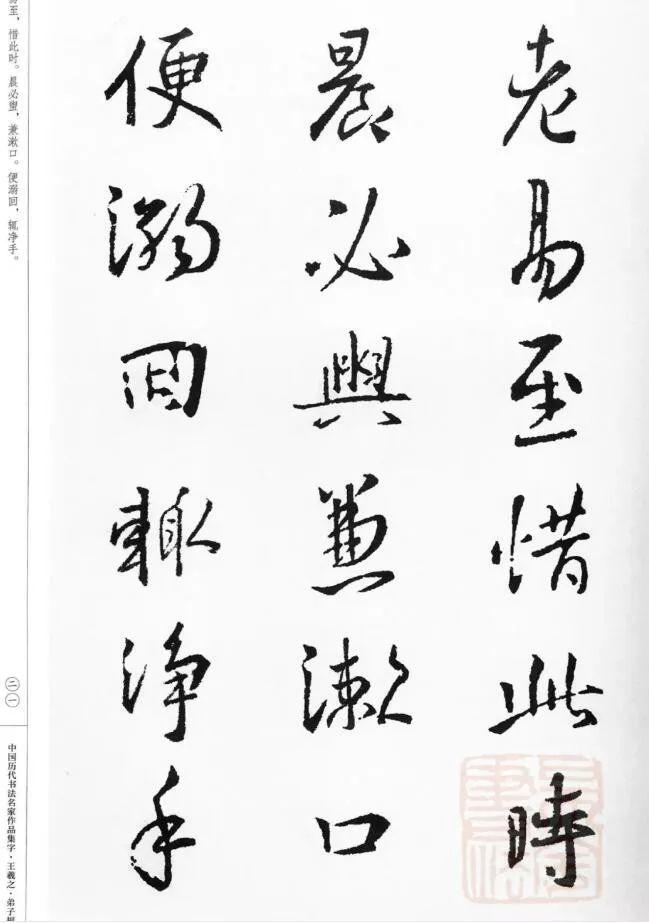 老易至惜此時
晨必盥兼漱口
便溺回輒淨手
易至，惜此时。晨必盥，兼漱口。便溺回，辄净手。
二一
中国历代书法名家作品集字·王羲之·弟子规